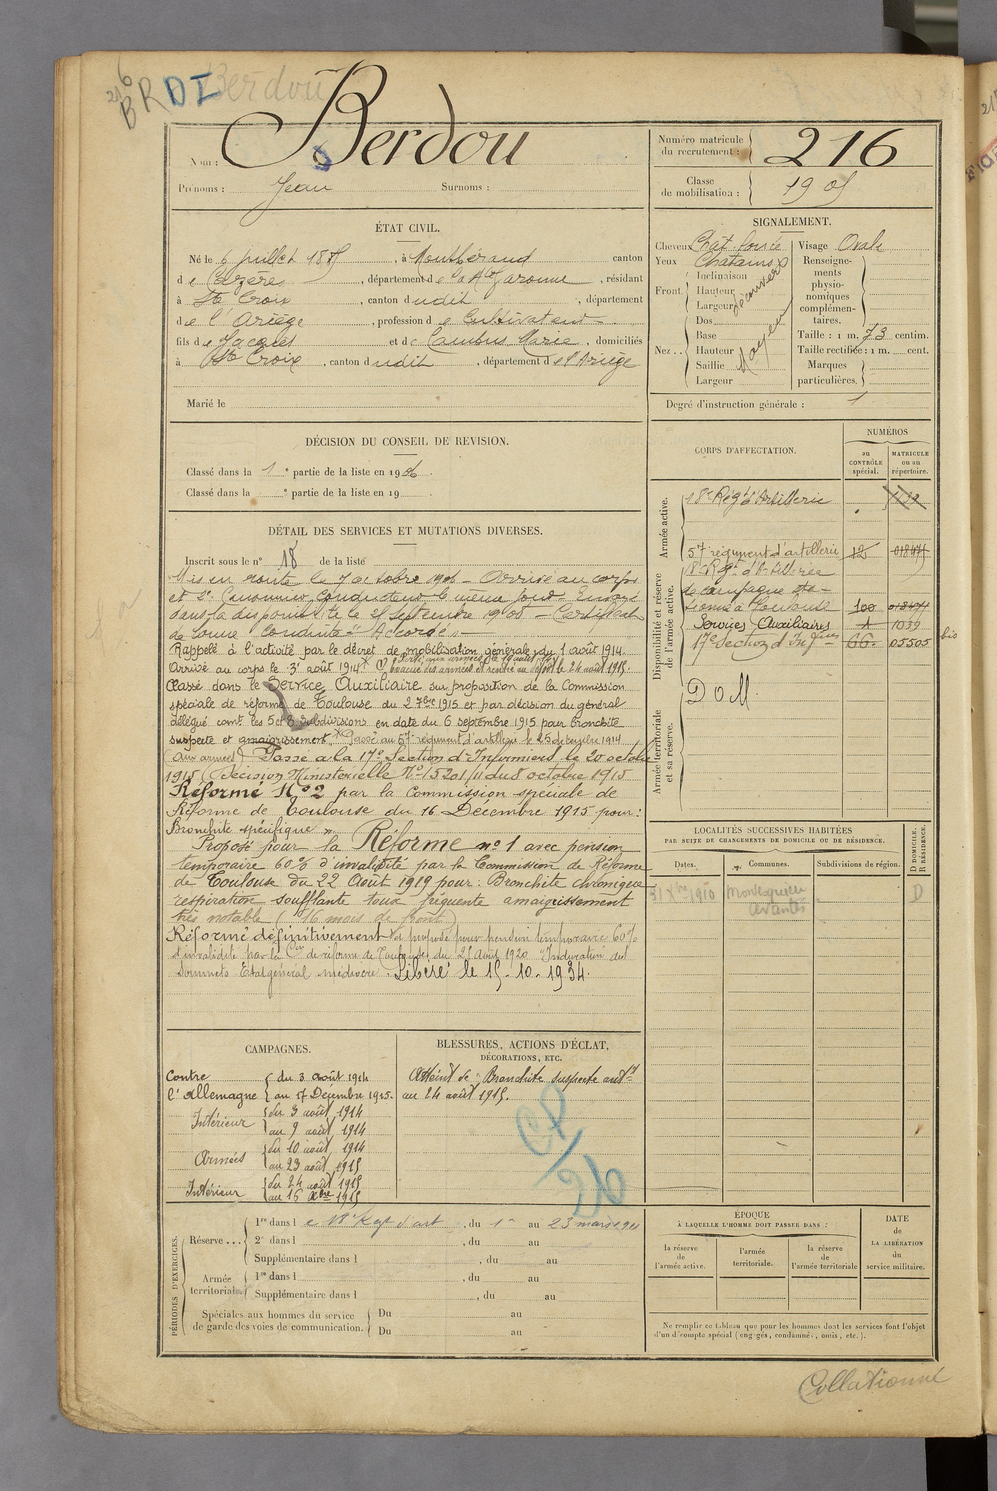 216
BRDI Berdou
Nom : Berdou
Prénoms : Jean Surnoms :
Numéro matricule du recrutement : 216
Classe de mobilisation : 1905
ÉTAT CIVIL.
Né le 6 juillet 1885, à Montbéraud canton
de Cazères, département de la Hte Garonne, résidant
à Ste Croix, canton dudit, département
de l'Ariège, profession de Cultivateur
fils de Jacques et de Cambus Marie, domiciliés
à Ste Croix, canton dudit, département de l'Ariège
Marié le
SIGNALEMENT.
Cheveux Chât. foncé
Yeux Châtains
Front. Inclinaison
Hauteur
Largeur
Nez.. Dos
Base
Hauteur
Saillie
Largeur
Moyen
Visage Ovale
Renseignements physionomiques complémentaires.
Taille : 1 m. 73 centim.
Taille rectifiée : 1 m. cent.
Marques particulières.
Degré d'instruction générale : 1
DÉCISION DU CONSEIL DE REVISION.
Classé dans la 1e partie de la liste en 1906.
Classé dans la e partie de la liste en 19
DÉTAIL DES SERVICES ET MUTATIONS DIVERSES.
Inscrit sous le n° 18 de la liste
Mis en route le 7 octobre 1906 – Arrivé au corps
et 2e Canonnier Conducteur le même jour – Envoyé
dans la disponibilité le 25 septembre 1908 – Certificat
de bonne conduite "Accordé" –
Rappelé à l'activité par le décret de mobilisation générale du 1 août 1914.
Parti aux armées le 10 août 1914
Arrivé au corps le 3 août 1914 * (1) évacué des armées et rentré au dépôt le 24 août 1915.
Classé dans le Service Auxiliaire sur proposition de la Commission
spéciale de réforme de Toulouse du 2 7bre 1915 et par décision du général
délégué comt. les 5 et 8 subdivisions en date du 6 septembre 1915 pour bronchite
suspecte et amaigrissement. * Passé au 57e régiment d'artillerie le 25 décembre 1914
(aux armées) Passé à la 17e Section d'Infirmiers le 20 octobre
1915 (Décision Ministérielle No 15201/11 du 8 octobre 1915
Réformé No 2 par la Commission spéciale de
Réforme de Toulouse du 16 Décembre 1915 pour:
Bronchite spécifique ».
Proposé pour la Réforme no 1 avec pension
temporaire 60% d'invalidité par la Commission de Réforme
de Toulouse du 22 Août 1919 pour : Bronchite chronique
respiration soufflante toux fréquente amaigrissement
très notable (16 mois de front)
Réformé définitivement et proposé pour pension temporaire 60%
d'invalidité par la Con de réforme de Toulouse du 25 Août 1920 "Induration des
Sommets Etat général médiocre. Libéré le 15-10-1934.
CORPS D'AFFECTATION.
NUMÉROS
au CONTRÔLE spécial.
MATRICULE ou au répertoire.
Armée active.
18e Rég. d'Artillerie
Disponibilité et réserve de l'armée active.
57e régiment d'artillerie 12 01845
18e Rgt d'Artillerie
de campagne sta-
tionné à Toulouse 100
Services Auxiliaires 1 1039
17e Section d'Infirmiers 66. 05505 bis
Armée territoriale et sa réserve.
DOM.
LOCALITÉS SUCCESSIVES HABITÉES
PAR SUITE DE CHANGEMENTS DE DOMICILE OU DE RÉSIDENCE.
Dates. Communes. Subdivisions de région. D DOMICILE. R RÉSIDENCE.
31 Xbre 1910 Montesquieu Avantès D
CAMPAGNES.
Contre l'Allemagne { du 3 août 1914
au 17 Décembre 1915.
Intérieur { du 3 août 1914
au 9 août 1914
Armées { du 10 août 1914
au 23 août 1915
Intérieur { du 24 août 1915
au 16 Xbre 1915
BLESSURES, ACTIONS D'ÉCLAT,
DÉCORATIONS, ETC.
Atteint de "Bronchite suspecte
au 24 août 1915.
CP/26
PÉRIODES D'EXERCICES.
Réserve ... 1re dans l e 18e Regt d'art, du 1er au 23 mars 1911
2e dans l , du au
Supplémentaire dans l , du au
Armée territoriale. 1re dans l , du au
Supplémentaire dans l , du au
Spéciales aux hommes du service
de garde des voies de communication. Du au
Du au
ÉPOQUE
À LAQUELLE L'HOMME DOIT PASSER DANS :
la réserve de l'armée active.
l'armée territoriale.
la réserve de l'armée territoriale
DATE DE LA LIBÉRATION du service militaire.
Ne remplir ce tableau que pour les hommes dont les services font l'objet
d'un décompte spécial (engagés, condamnés, omis, etc.).
Collationné